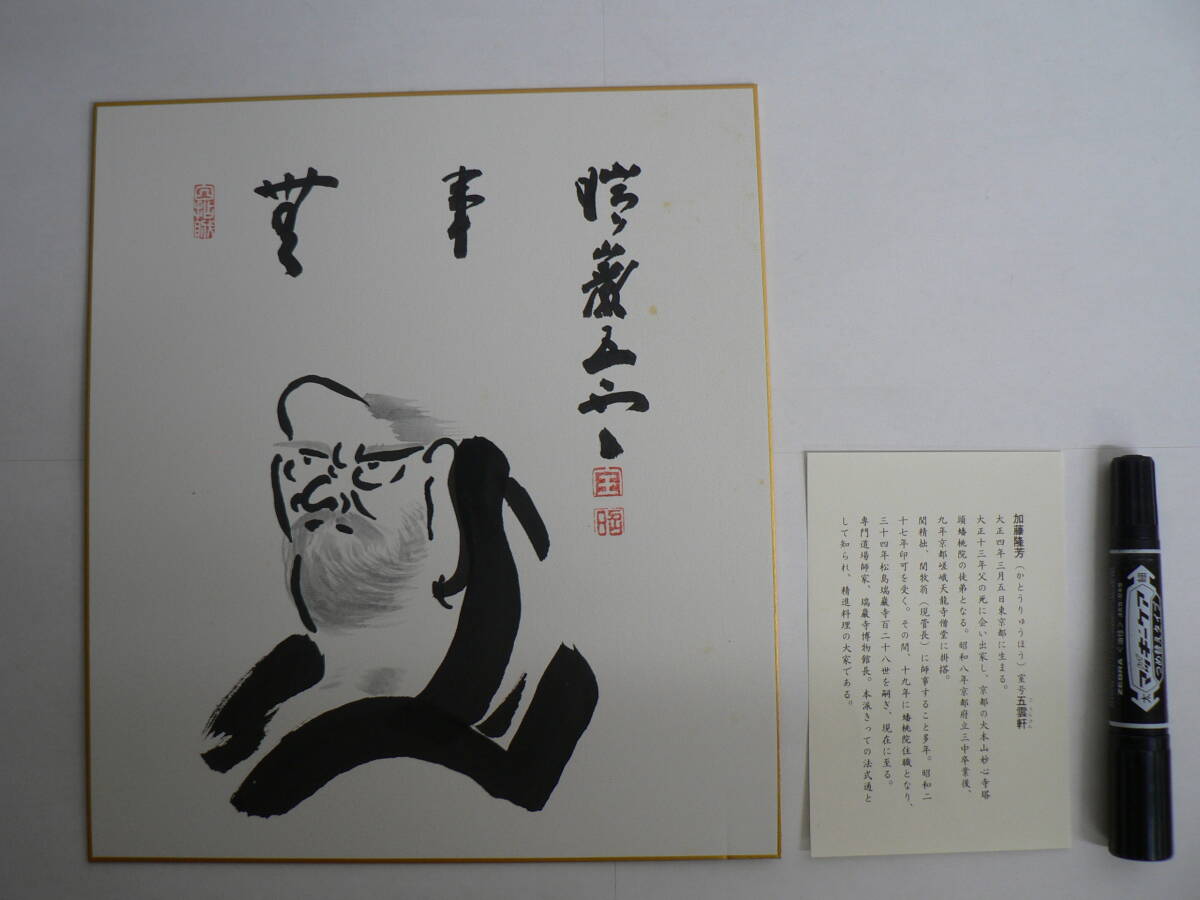 無事
瑞巌五雲
加藤隆芳(かとうりゅうほう)室号五雲軒
大正四年三月五日東京都に生まる。
大正十三年父の死に会い出家し、京都の大本山妙心寺塔
頭蟠桃院の徒弟となる。昭和八年京都府立三中卒業後、
九年京都嵯峨天龍寺僧堂に掛搭。
関精拙、関牧翁(現管長)に師事すること多年。昭和二
十七年印可を受く。その間、十九年に蟠桃院住職となり、
三十四年松島瑞巌寺百二十八世を嗣ぎ、現在に至る。
専門道場師家、瑞巌寺博物館長。本派きっての法式通と
して知られ、精進料理の大家である。
マッキーケア
ZEBRA
細
太